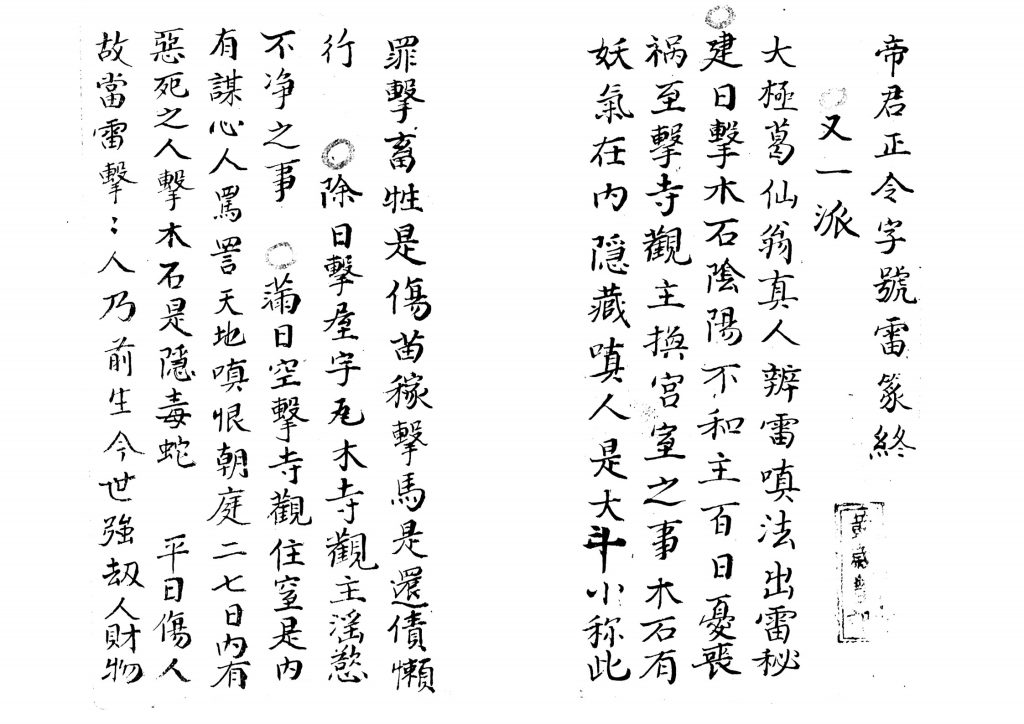 帝君正令字號雷篆終
又一派
大極葛仙翁真人辨雷嗔法出雷秘
建日擊木石陰陽不和主百日憂喪
祸至擊寺觀主換宮室之事木石有
妖氣在內隐藏嗔人是大斗小称此
罪擊畜牲是傷苗稼擊馬是還債懶
行 除日擊屋宇瓦木寺觀主滛慾
不净之事 滿日空擊寺觀住室是内
有謀心人罵詈天地嗔恨朝庭二七日內有
惡死之人擊木石是隱毒蛇 平日傷人
故當雷擊：人乃前生今世強刼人財物